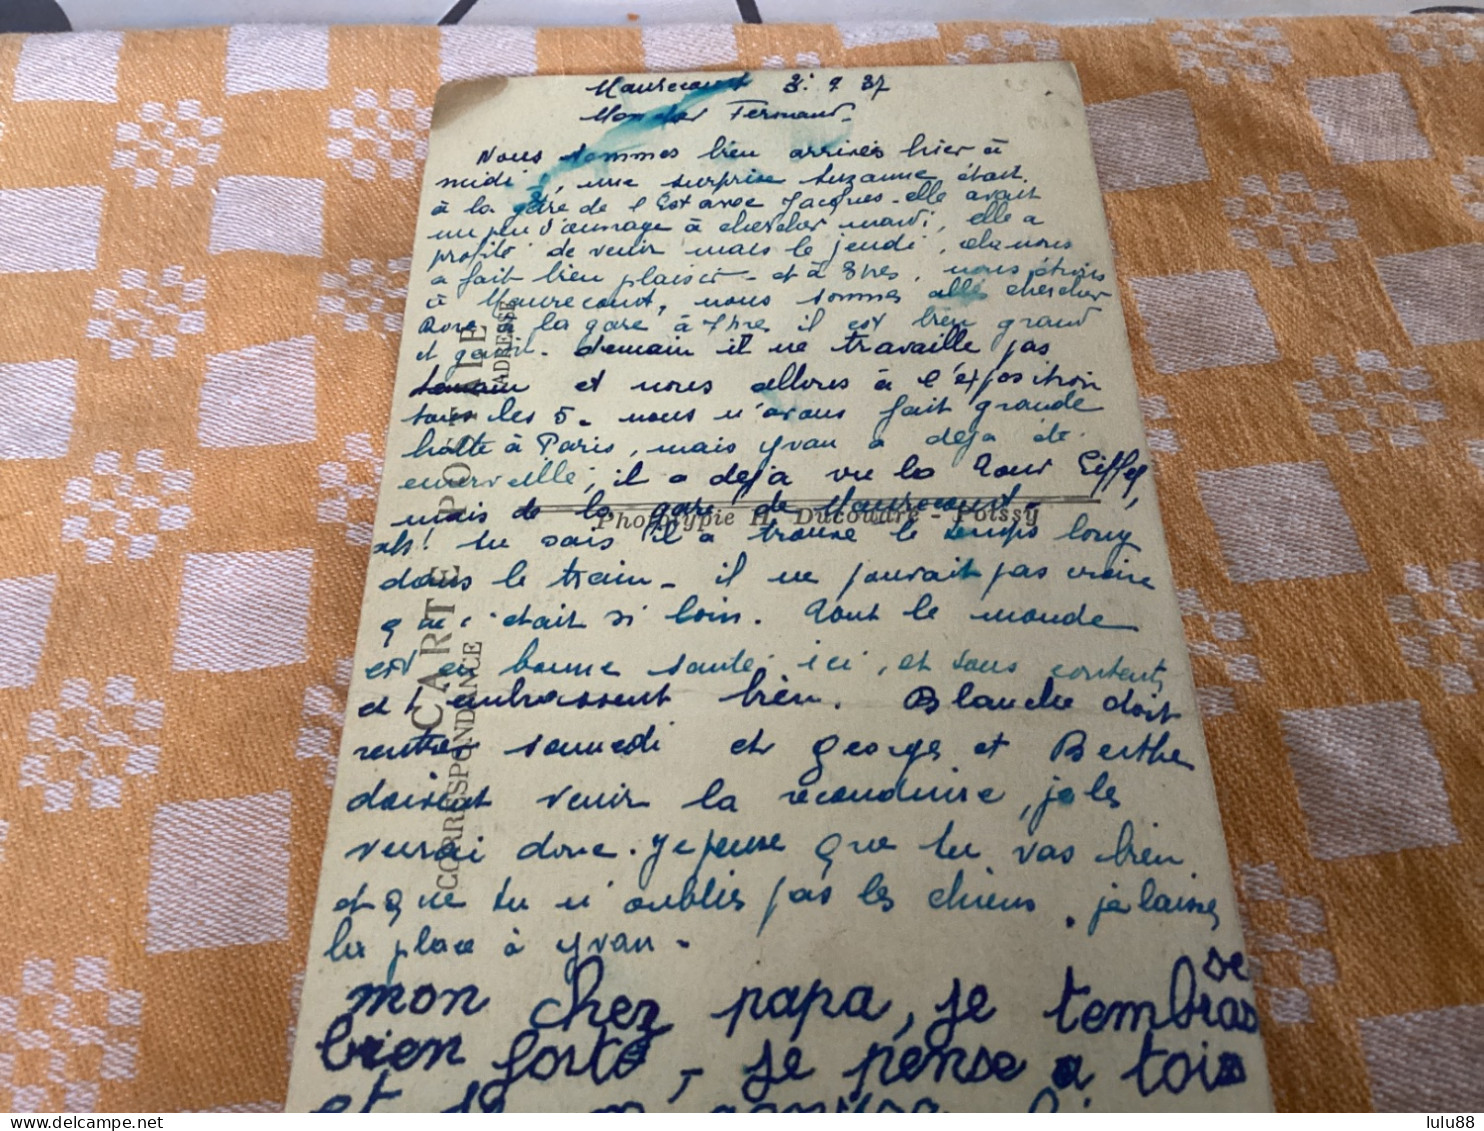 Maurecourt 3. 9 37
Mon cher Fernand.
Nous sommes bien arrivés hier à
midi, une surprise Suzanne était
à la gare de l'Est avec Jacques. elle avait
un peu d'ouvrage à chercher mardi, elle a
profité de venir mais le jeudi, cela nous
a fait bien plaisir - et à 3hres, nous étions
à Maurecourt, nous sommes allés chercher
à la gare à 7hre il est bien grand
et gentil. demain il ne travaille pas
et nous allons à l'exposition
tous les 5. nous n'avons fait grande
halte à Paris, mais Yvan a deja été
emerveillé, il a deja vu la Tour Eiffel,
mais de la gare de Maurecourt
Phototypie H. Ducoware - Poissy
ah! tu sais il a trouve le temps long
dans le train - il ne pouvait pas croire
que c'etait si loin. Tout le monde
est en bonne santé ici, et tous contents
et t'embrassent bien. Blanche doit
rentrer samedi et George et Berthe
doivent venir la reconduire, je les
verrai donc. Je pense que tu vas bien
et que tu n'oublies pas les chiens. je laisse
la place à Yvan -
mon cher papa, je tembrasse
bien forte, je pense a toi
et
CARTE POSTALE
CORRESPONDANCE
ADRESSE
lulu88